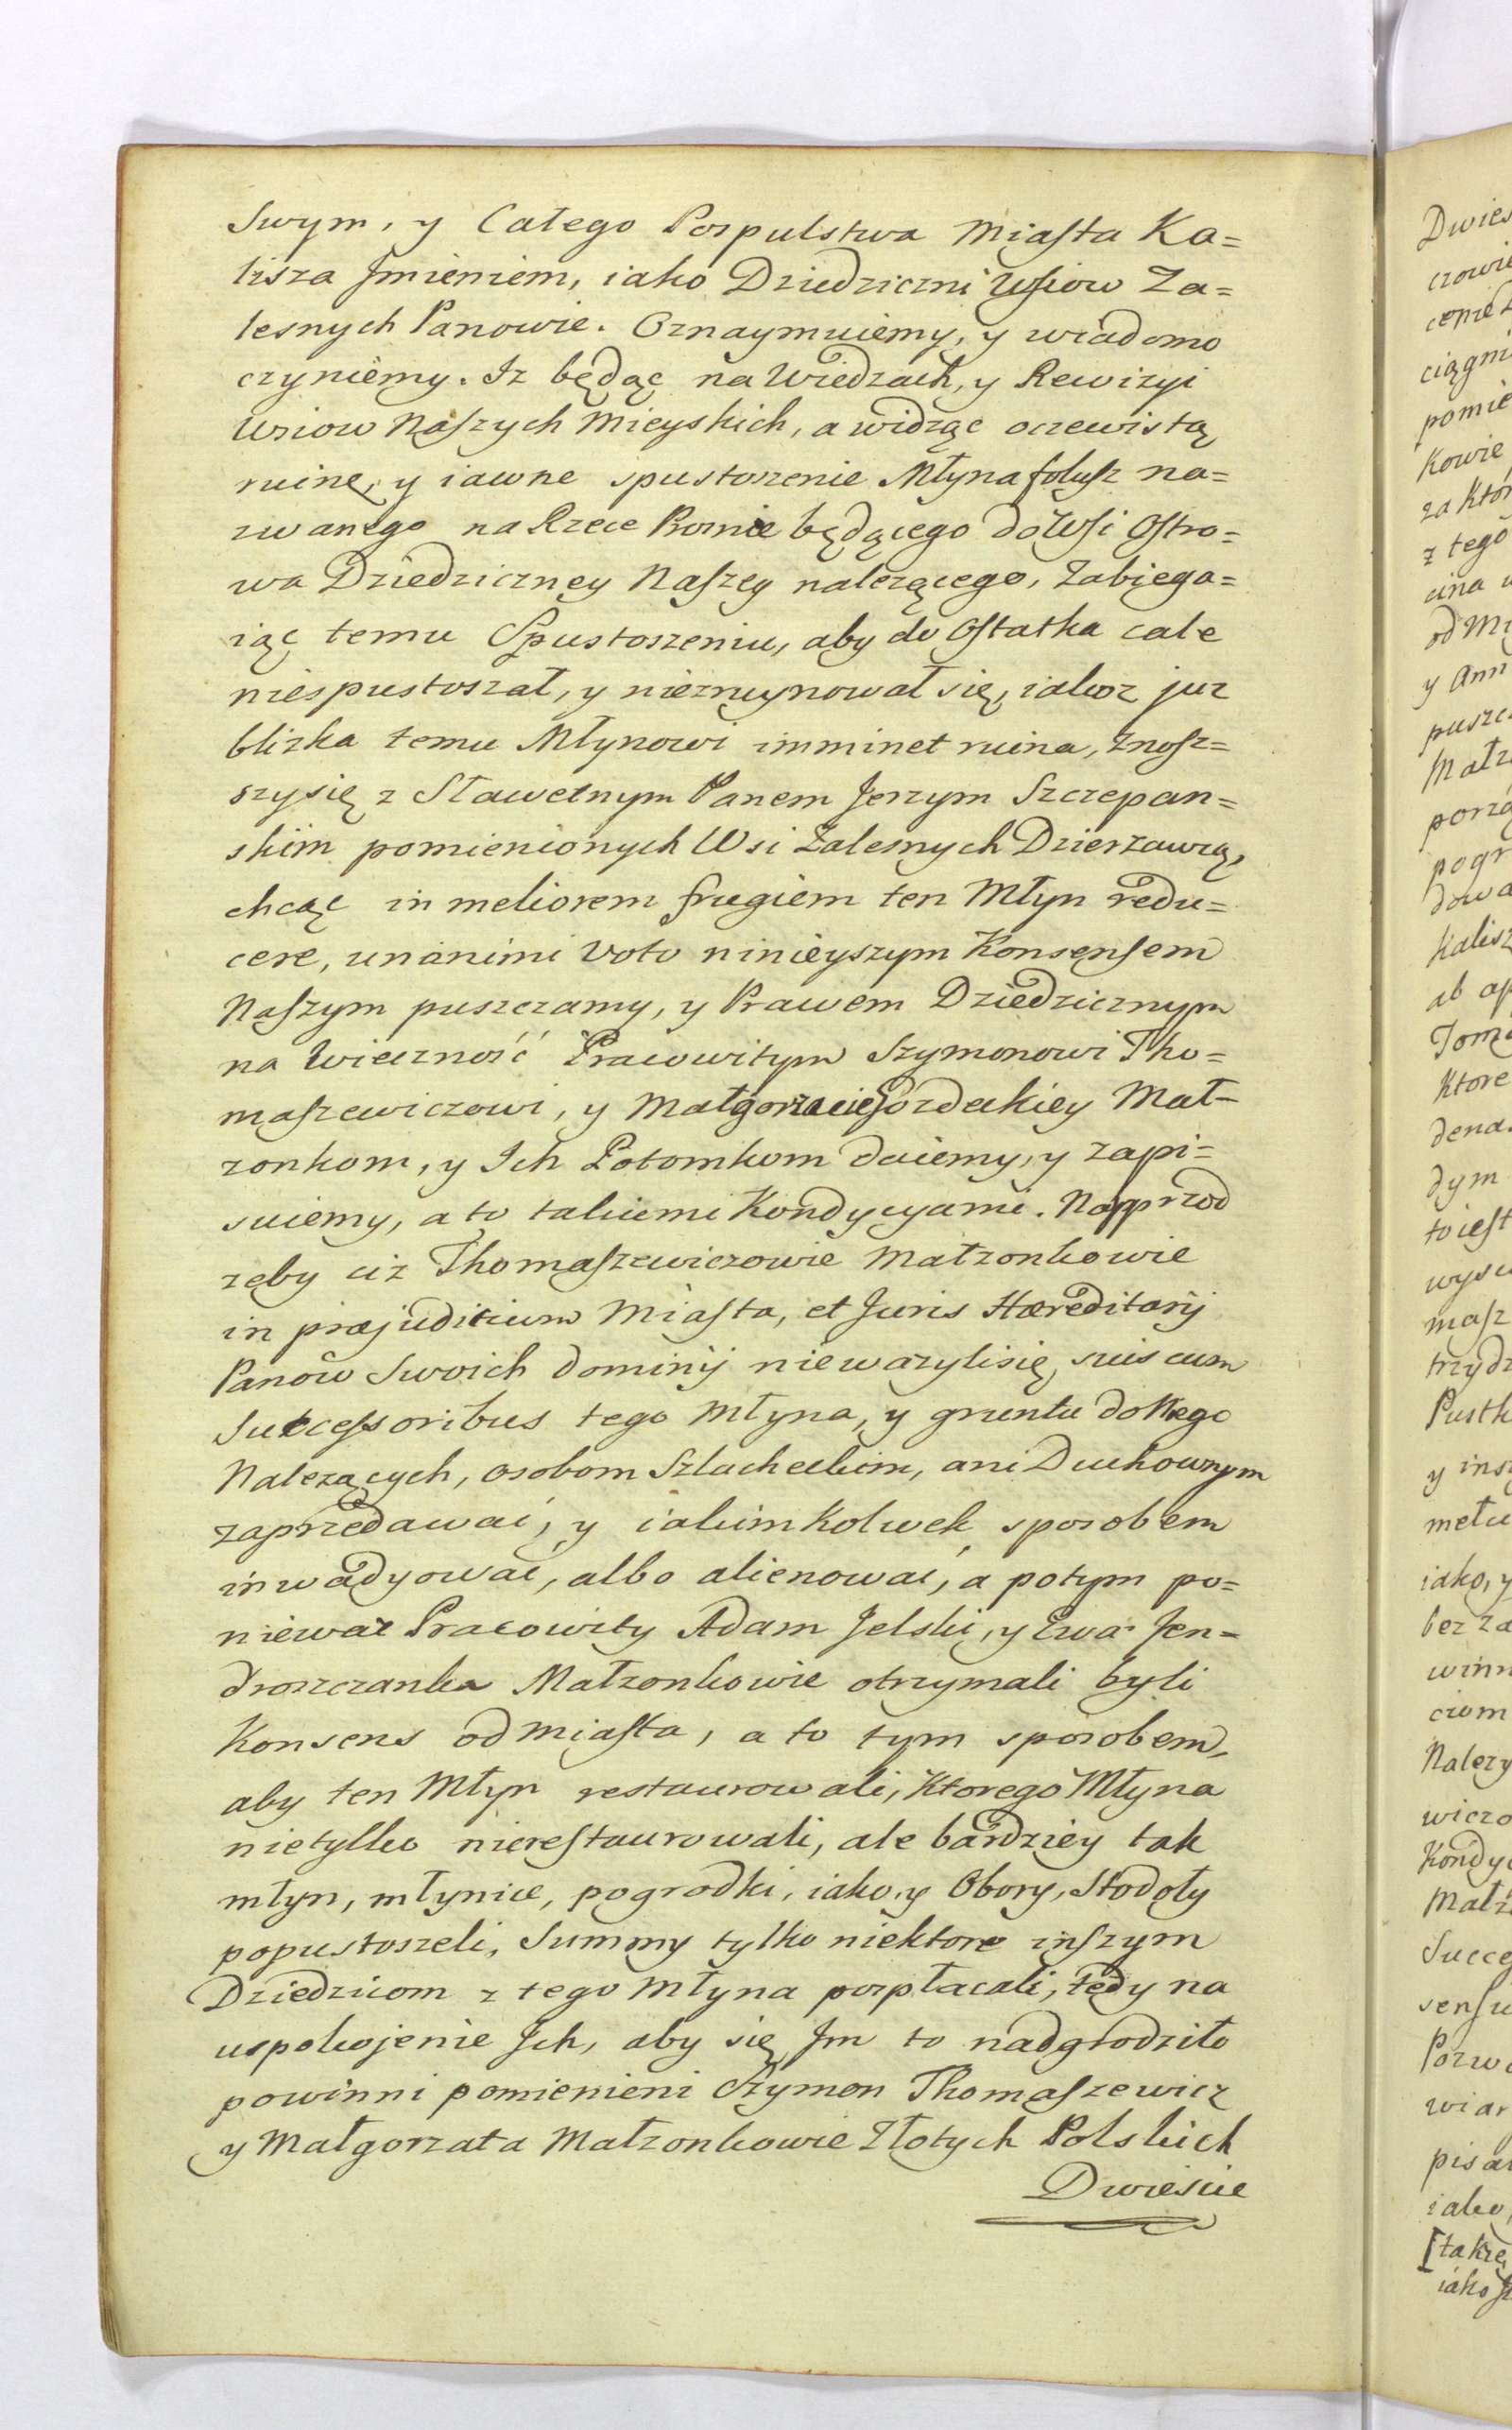 Swym, y Całego Pospulstwa Miasta Ka=
lisza Jmieniem, iako Dziedziczni Wsiow Za=
lesnych Panowie. Oznaymuiemy, y wiadomo
czyniemy. Iz będąc na Wiedzach, y Rewizyi
Wsiow Naszych Mieyskich, a widząc oczewistą
ruinę, y iawne spustoszenie Młyna folusz na=
zwanego na Rzece Prosnie będącego do Wsi Ostro=
wa Dziedziczney Naszey nalezącego, Zabiega=
iąc temu Spustoszeniu, aby do Ostatka cale
niespustoszał, y nieznuynował się, iakoz juz
blizka temu Młynowi imminet ruina, Znosz=
szysię z Sławetnym Panem Jerzym Szczepan=
skiim pomienionych Wsi Zalesnych Dzierzawcą,
chcąc in meliorem frugiem ten Młyn redu=
cere, unanimi Voto ninieyszym Konsensem
Naszym puszczamy, y Prawem Dziedzicznym
na Wieczność Pracowitym Szymonowi Tho=
maszewiczowi, y Małgorzacie Gozdeckiey Mał=
zonkom, y Ich Potomkom daiemy, y zapi=
suiemy, a to takiemi Kondycyami. Napprzod
zeby ciz Thomaszewiczowie Małzonkowie
in præjuditium Miasta, et Juris Hæreditarij
Panow Swoich dominij niewazylisię, suis cum
Sukcessoribus tego Młyna, y gruntu do Niego
Nalezących, osobom Szlacheckim, ani Duchownym
zaprzedawać, y iakimkolwek sposobem
inwadyować, albo alienować, a potym po=
niewaz Pracowity Adam Jelski, y Ewa Jen=
droszczanka Małzonkowie otrzymali byli
Konsens od Miasta, a to tym sposobem,
aby ten Młyn restaurowali, Ktorego Młyna
nietylko nierestaurowali, ale bardziey tak
młyn, młynice, pogrodki, iako, y Obory, Stodoły
popustoszeli, Summy tylko niektore inszym
Dziedzicom z tego Młyna pospłacali, tedy na
uspokojenie Jch, aby się Jm to nadgrodziło
powinni pomienieni Szymon Thomaszewicz
y Małgorzata Małzonkowie Złotych Polskich
Dwieście